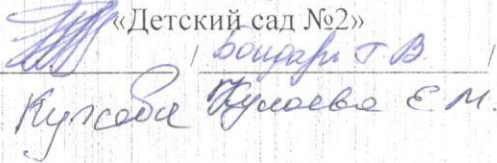 «Детский сад №2»
/ Бондарь Г. В. /
Кулаева Е. М.